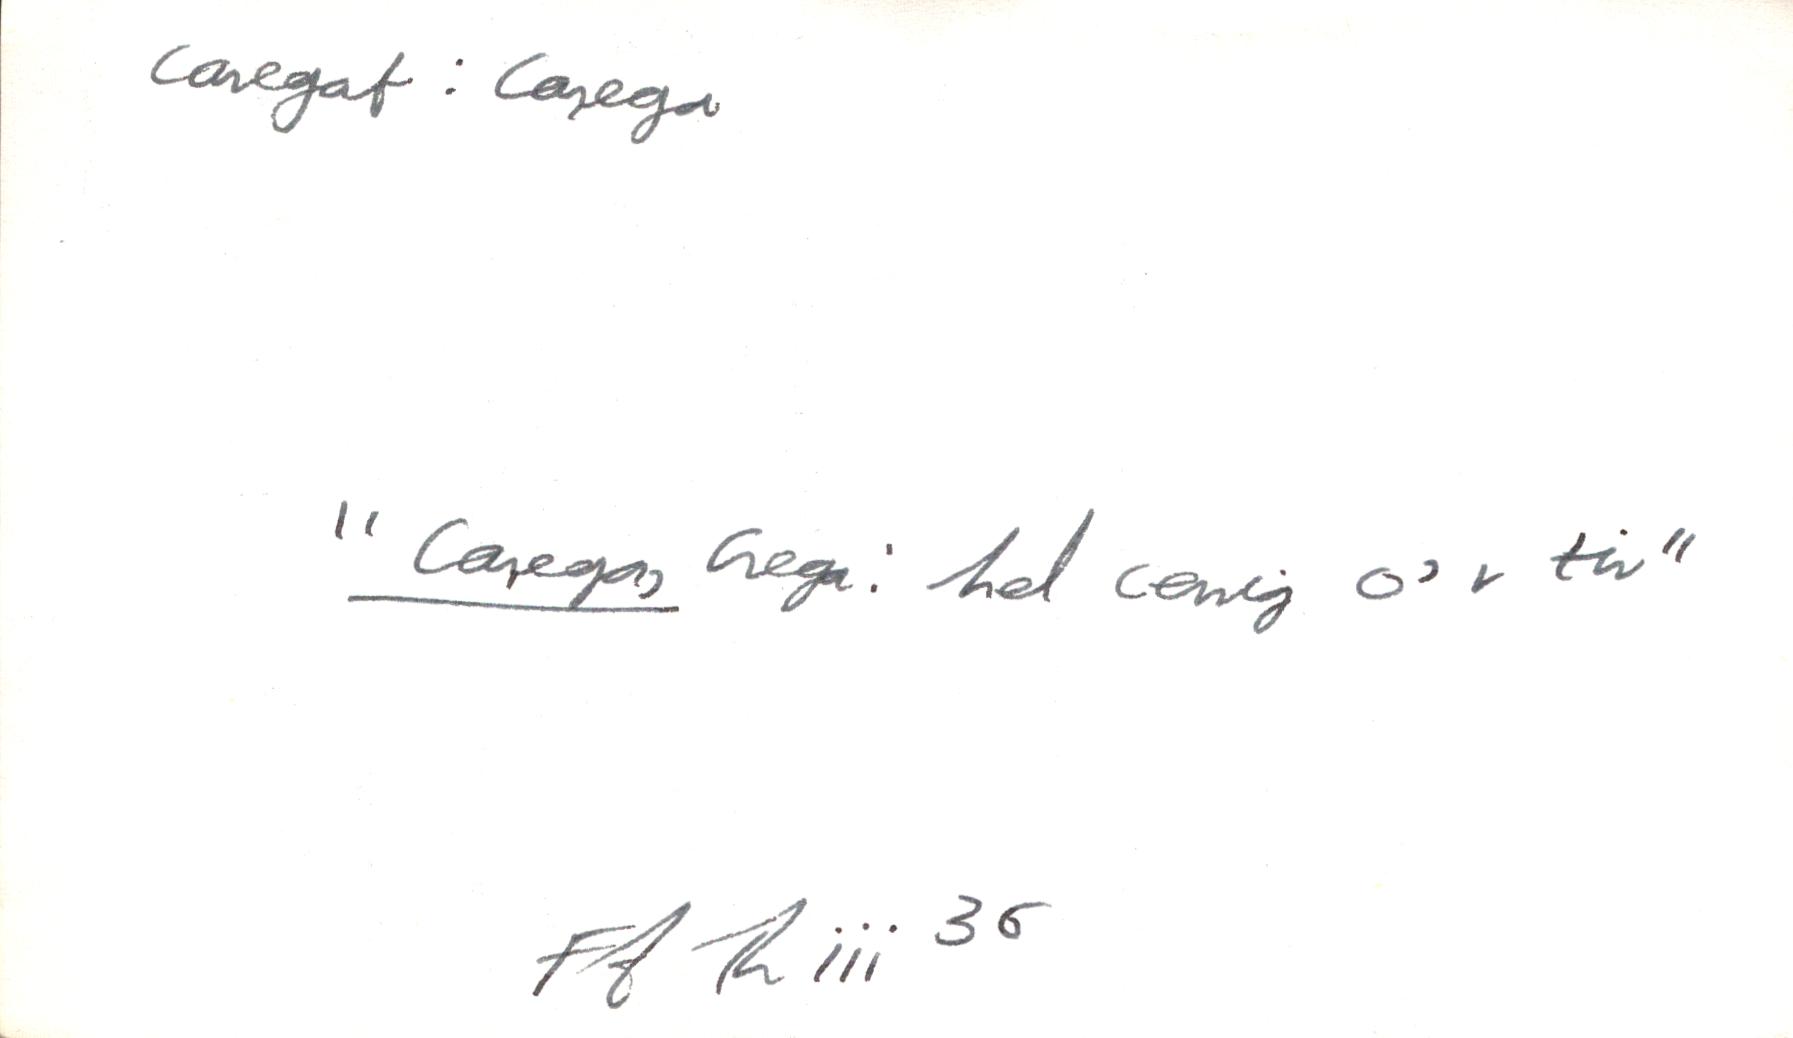 caregat : carega
"Carega, hega: hel cerrig o'r tir"
Ff Th iii 36